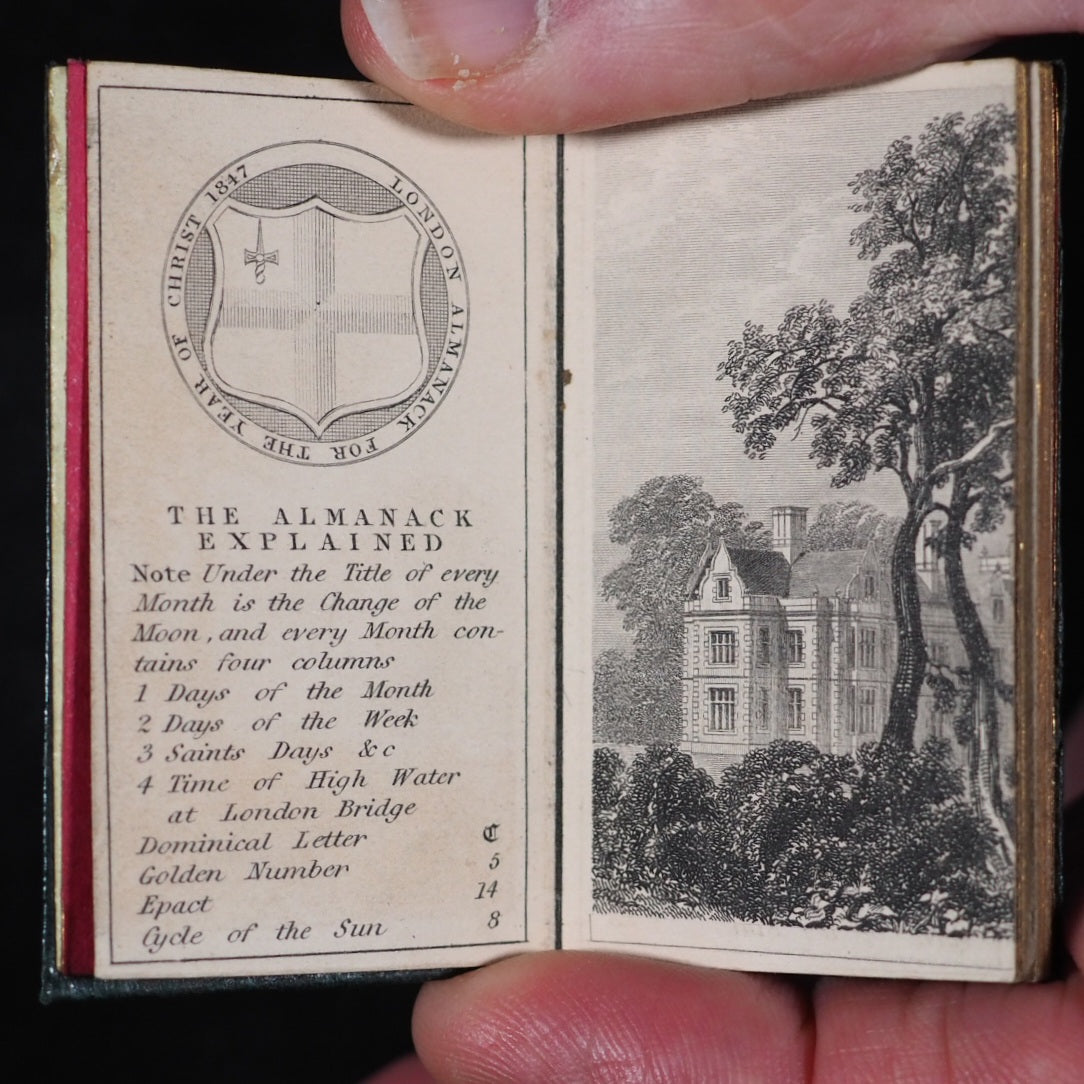 LONDON ALMANACK FOR THE YEAR OF CHRIST 1847
THE ALMANACK
EXPLAINED
Note Under the Title of every
Month is the Change of the
Moon, and every Month con-
tains four columns
1 Days of the Month
2 Days of the Week
3 Saints Days &c
4 Time of High Water
at London Bridge
Dominical Letter C
Golden Number 5
Epact 14
Cycle of the Sun 8